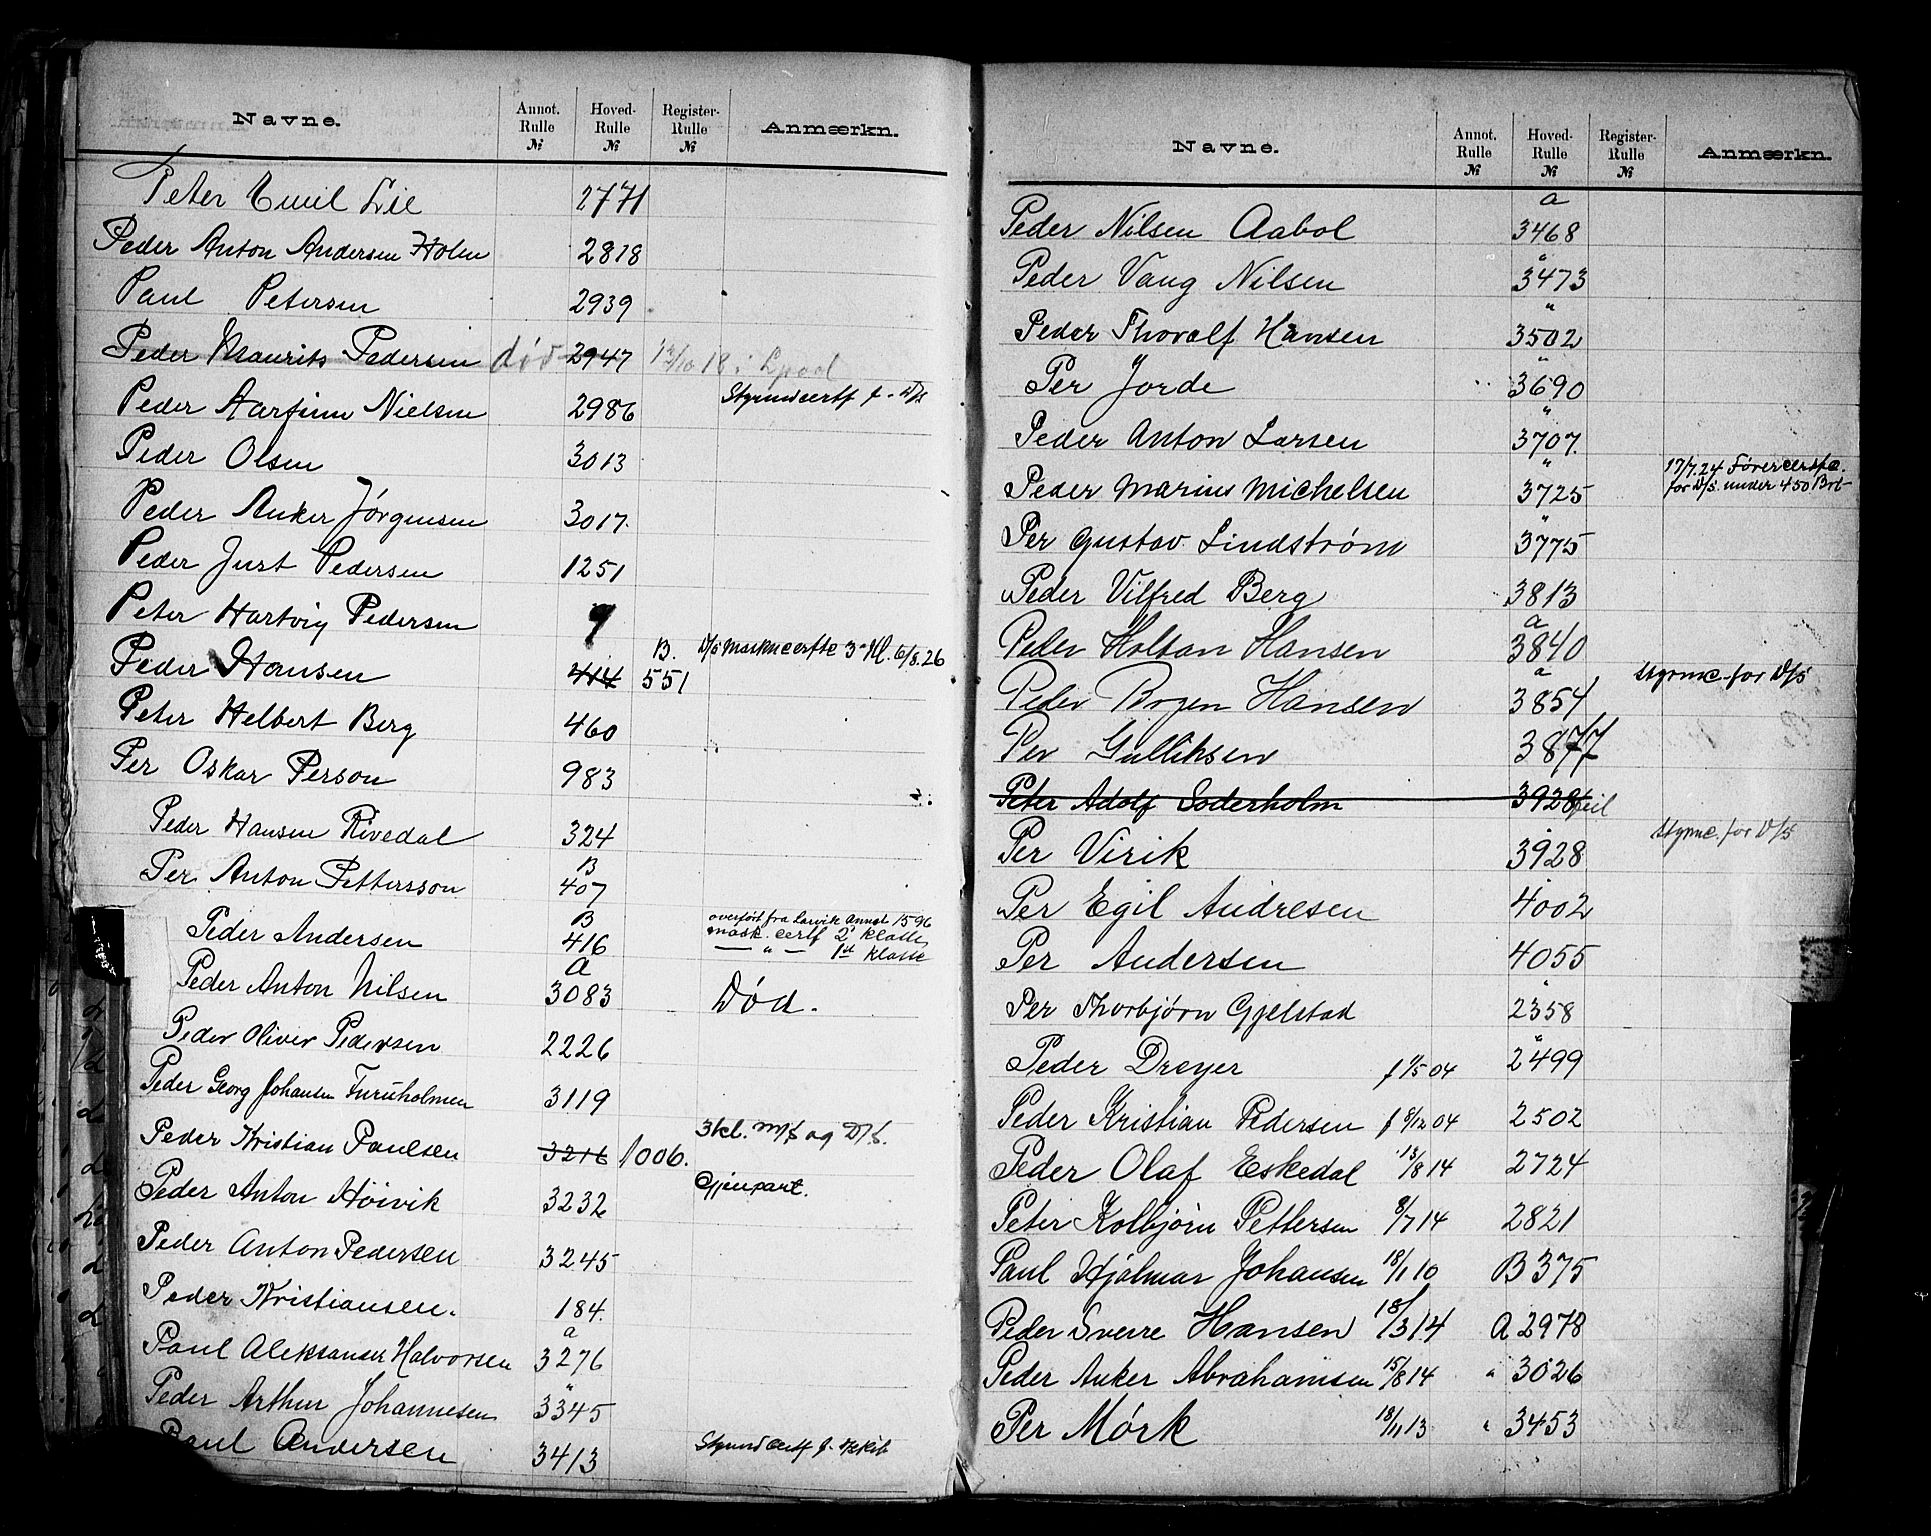 Navne. Annot. Rulle № Hoved- Rulle № Register- Rulle № Anmærkn.
Peter Emil Lie 2771
Peder Anton Andersen Holm 2818
Paul Petersen 2939
Peder Maurits Pedersen død 2947 13/10 18 i Lpool
Peder Aarfinn Nielsen 2986 Styrmdcertf f. D/s
Peder Olsen 3013
Peder Anker Jørgensen 3017.
Peder Just Pedersen 1251
Peter Hartvig Pedersen 9
Peder Hansen 414 B. 551 D/s Maskncertfc 3 Kl. 6/8.26
Peter Helbert Berg 460
Per Oskar Person 983
Peder Hansen Rivedal 324
Per Anton Pettersson B 407
Peder Andersen B 416 overført fra Larvik Annot 1596
mask. certf 2' klasse
— " — 1st klasse
Peder Anton Nilsen a 3083 Død.
Peder Oliver Pedersen 2226
Peder Georg Johansen Furuholmen 3119
Peder Kristian Paulsen 3216 1006. 3kl. M/s og D/s.
Peder Anton Höivik 3232 Gjenpart.
Peder Anton Pedersen 3245
Peder Kristiansen. 184.
Paul Aleksander Halvorsen a 3276
Peder Arthur Johannesen " 3345
Paul Andersen 3413 Styrmd certf f.
Navne. Annot. Rulle № Hoved- Rulle № Register- Rulle № Anmærkn.
Peder Nilsen Aabol a 3468
Peder Vang Nilsen " 3473
Peder Thoralf Hansen " 3502
Per Jorde " 3690
Peder Anton Larsen " 3707.
Peder Marius Michelsen " 3725 17/7.24 Førercertfc.
for D/s. under 450 Brt
Per Gustav Lindstrøm " 3775
Peder Vilfred Berg 3813
Peder Holtan Hansen a 3840
Peder Borgen Hansen a 3854 Styrmc. for D/s
Per Gulliksen 3877
Peter Adolf Soderholm 3928 feil
Per Virik 3928 Styrmc. for D/s
Per Egil Andresen 4002
Per Andersen 4055
Per Thorbjørn Gjelstad " 2358
Peder Dreyer f 1/5 04 " 2499
Peder Kristian Pedersen f 8/12 04 2502
Peder Olaf Eskedal 13/8 14 2724
Peter Kolbjörn Pettersen 8/7 14 2821
Paul Hjalmar Johansen 18/1 10 B 375
Peder Sverre Hansen 18/3 14 A 2978
Peder Anker Abrahamsen 15/8 14 " 3026
Per Mørk 18/11 13 " 3453